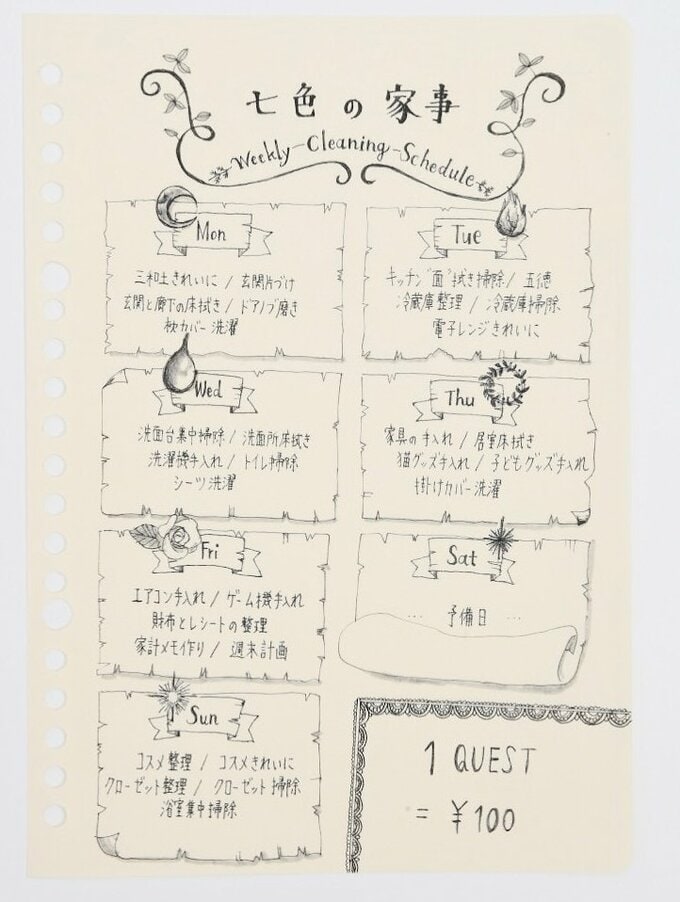 七色の家事
Weekly-Cleaning-Schedule
Mon
三和土きれいに / 玄関片づけ
玄関と廊下の床拭き / ドアノブ磨き
枕カバー洗濯
Tue
キッチン"面"拭き掃除 / 五徳
冷蔵庫整理 / 冷蔵庫掃除
電子レンジきれいに
Wed
洗面台集中掃除 / 洗面所床拭き
洗濯機手入れ / トイレ掃除
シーツ洗濯
Thu
家具の手入れ / 居室床拭き
猫グッズ手入れ / 子どもグッズ手入れ
掛けカバー洗濯
Fri
エアコン手入れ / ゲーム機手入れ
財布とレシートの整理
家計メモ作り / 週末計画
Sat
… 予備日 …
Sun
コスメ整理 / コスメきれいに
クローゼット整理 / クローゼット掃除
浴室集中掃除
1 QUEST
= ¥100